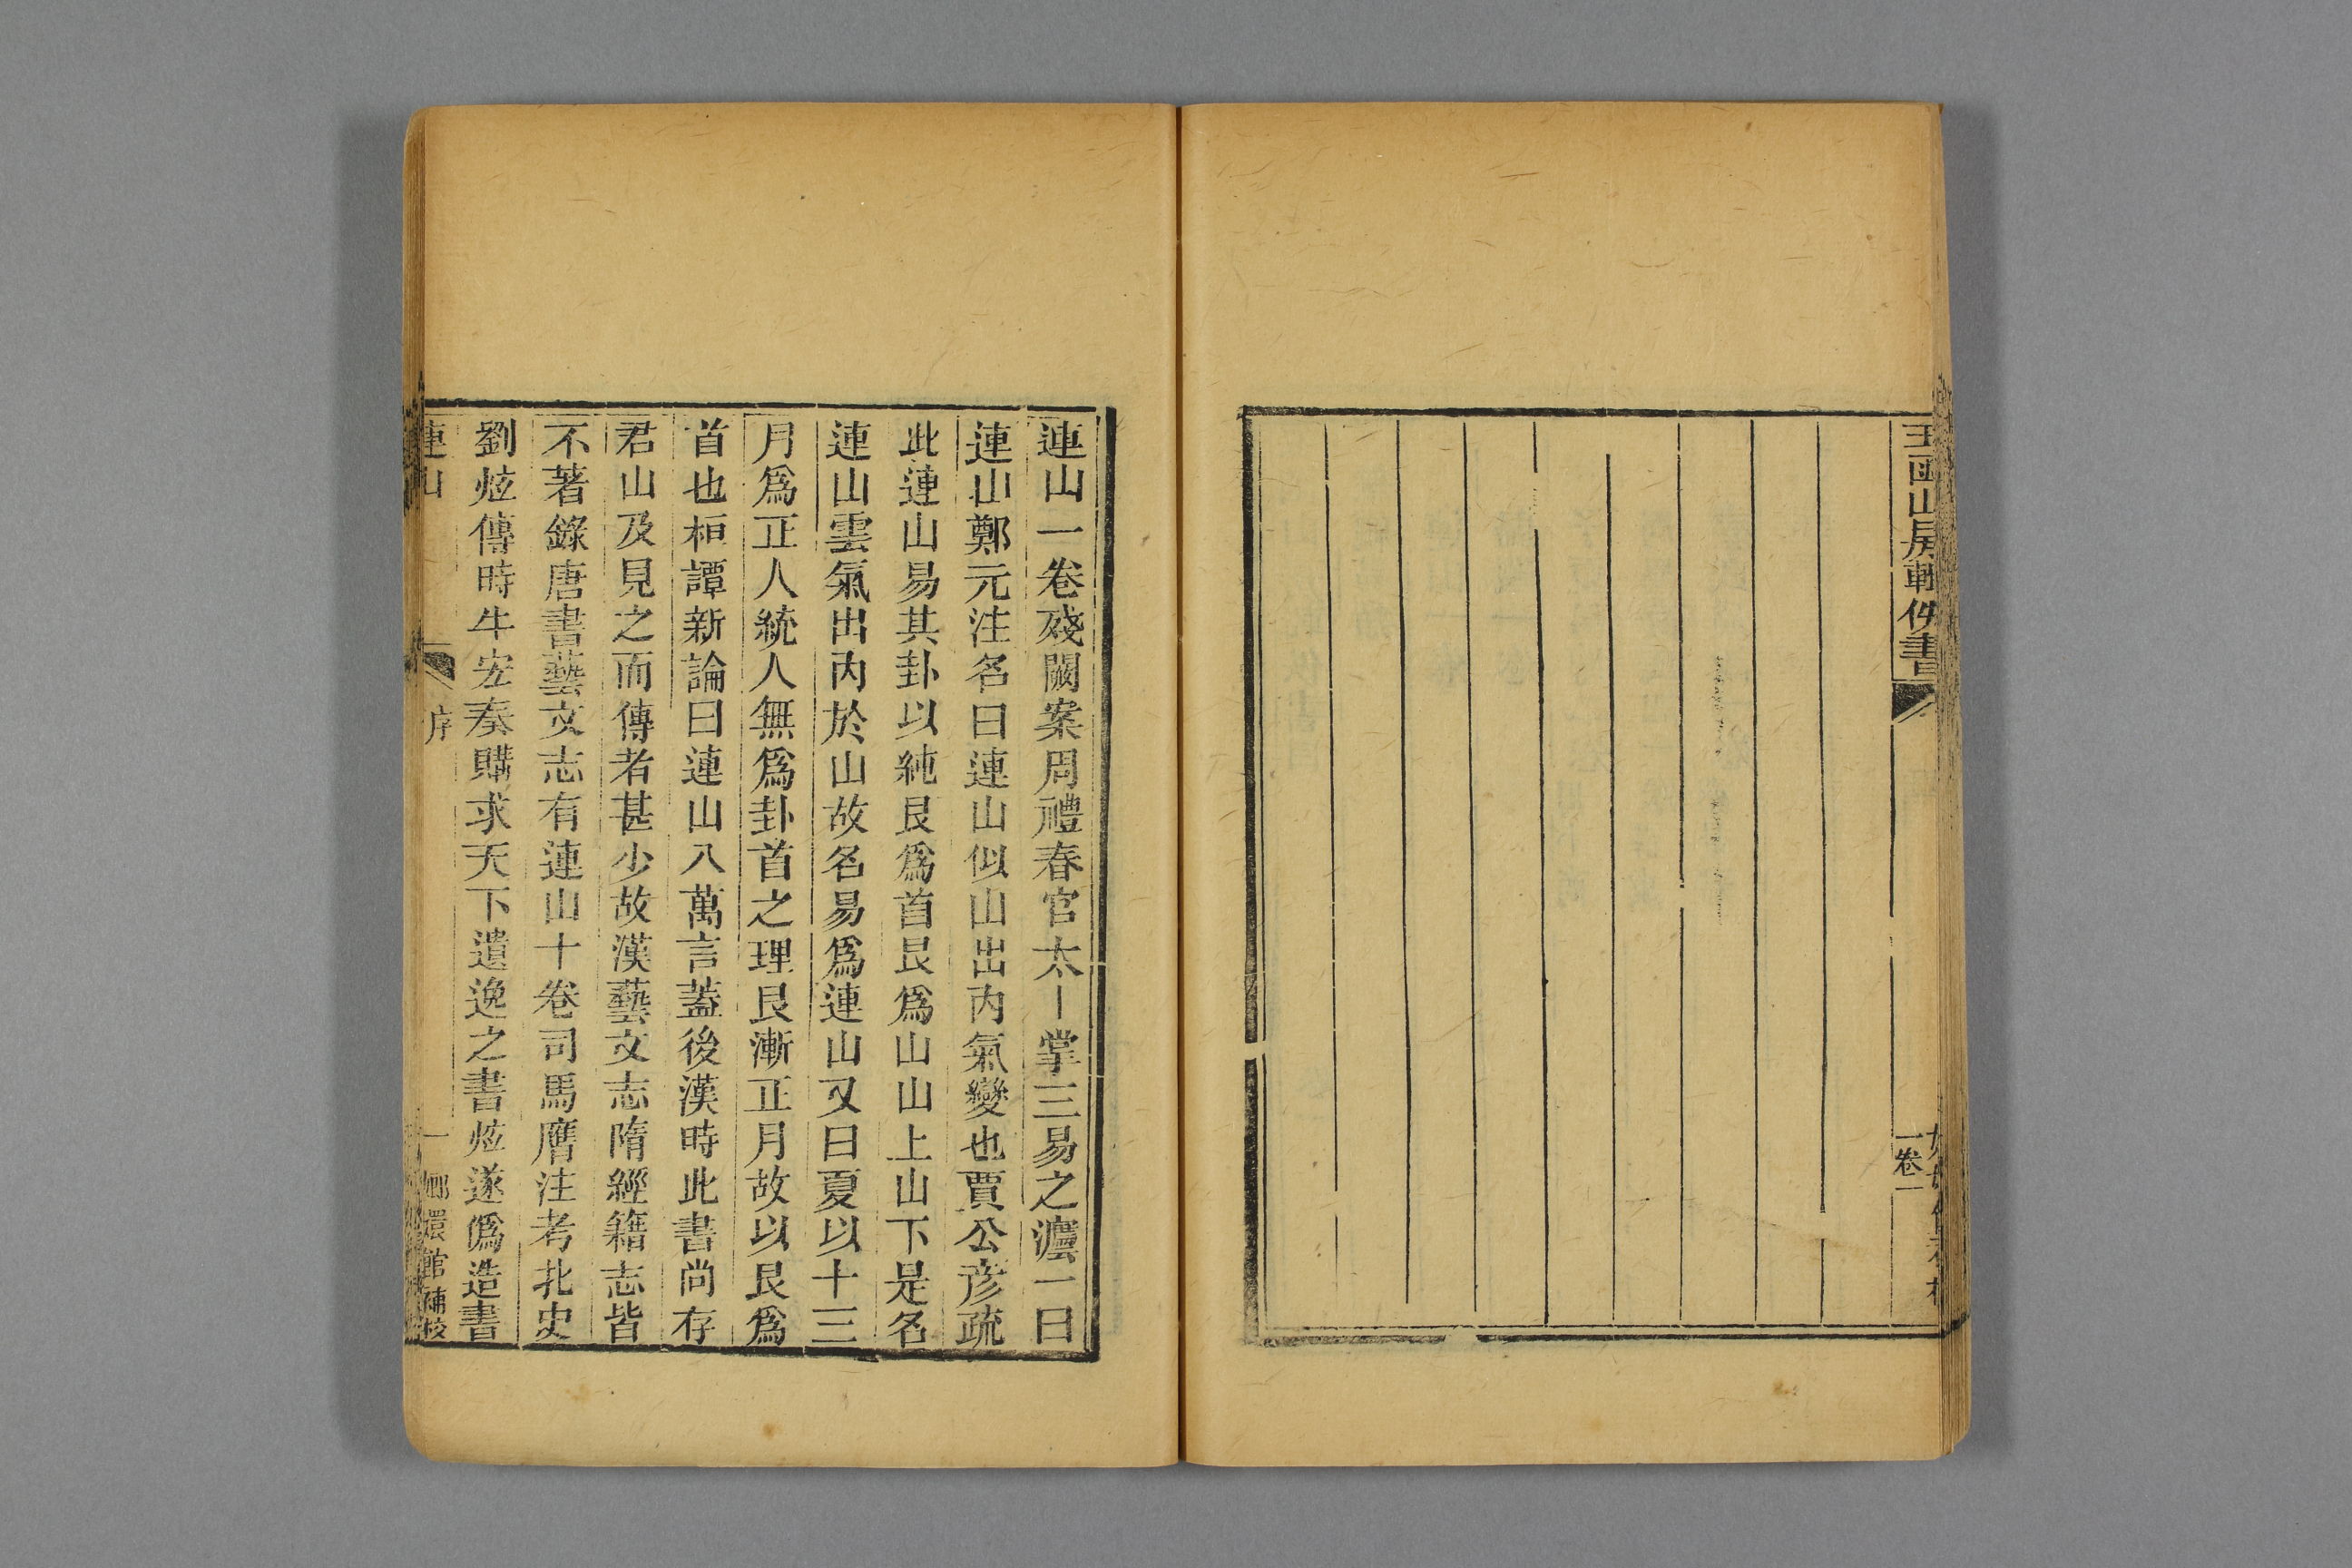 玉函山房輯佚書
卷一
一
連山一卷殘闕案周禮春官太卜掌三易之灋一曰
連山鄭元注名曰連山似山出內氣變也賈公彥疏
此連山易其卦以純艮爲首艮爲山山上山下是名
連山雲氣出內於山故名易爲連山又曰夏以十三
月爲正人統人無爲卦首之理艮漸正月故以艮爲
首也桓譚新論曰連山八萬言蓋後漢時此書尚存
君山及見之而傳者甚少故漢藝文志隋經籍志皆
不著錄唐書藝文志有連山十卷司馬膺注考北史
劉炫傳時牛宏奏購求天下遺逸之書炫遂僞造書
連山
序
一
嫏嬛館補校